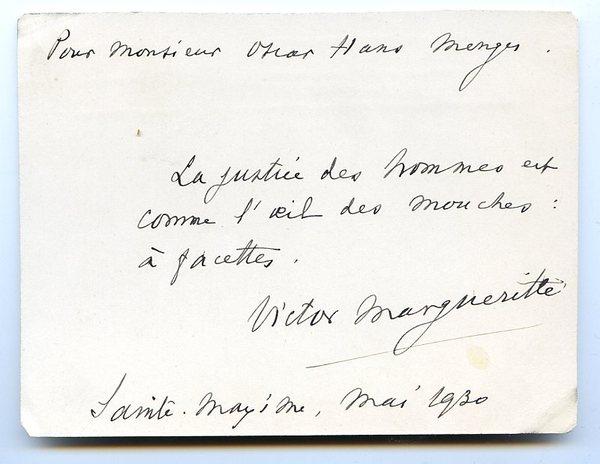 Pour Monsieur Oscar Hans Menges.
La justice des hommes est
comme l'œil des mouches :
à facettes.
Victor Margueritte
Sainte-Maxime, Mai 1930